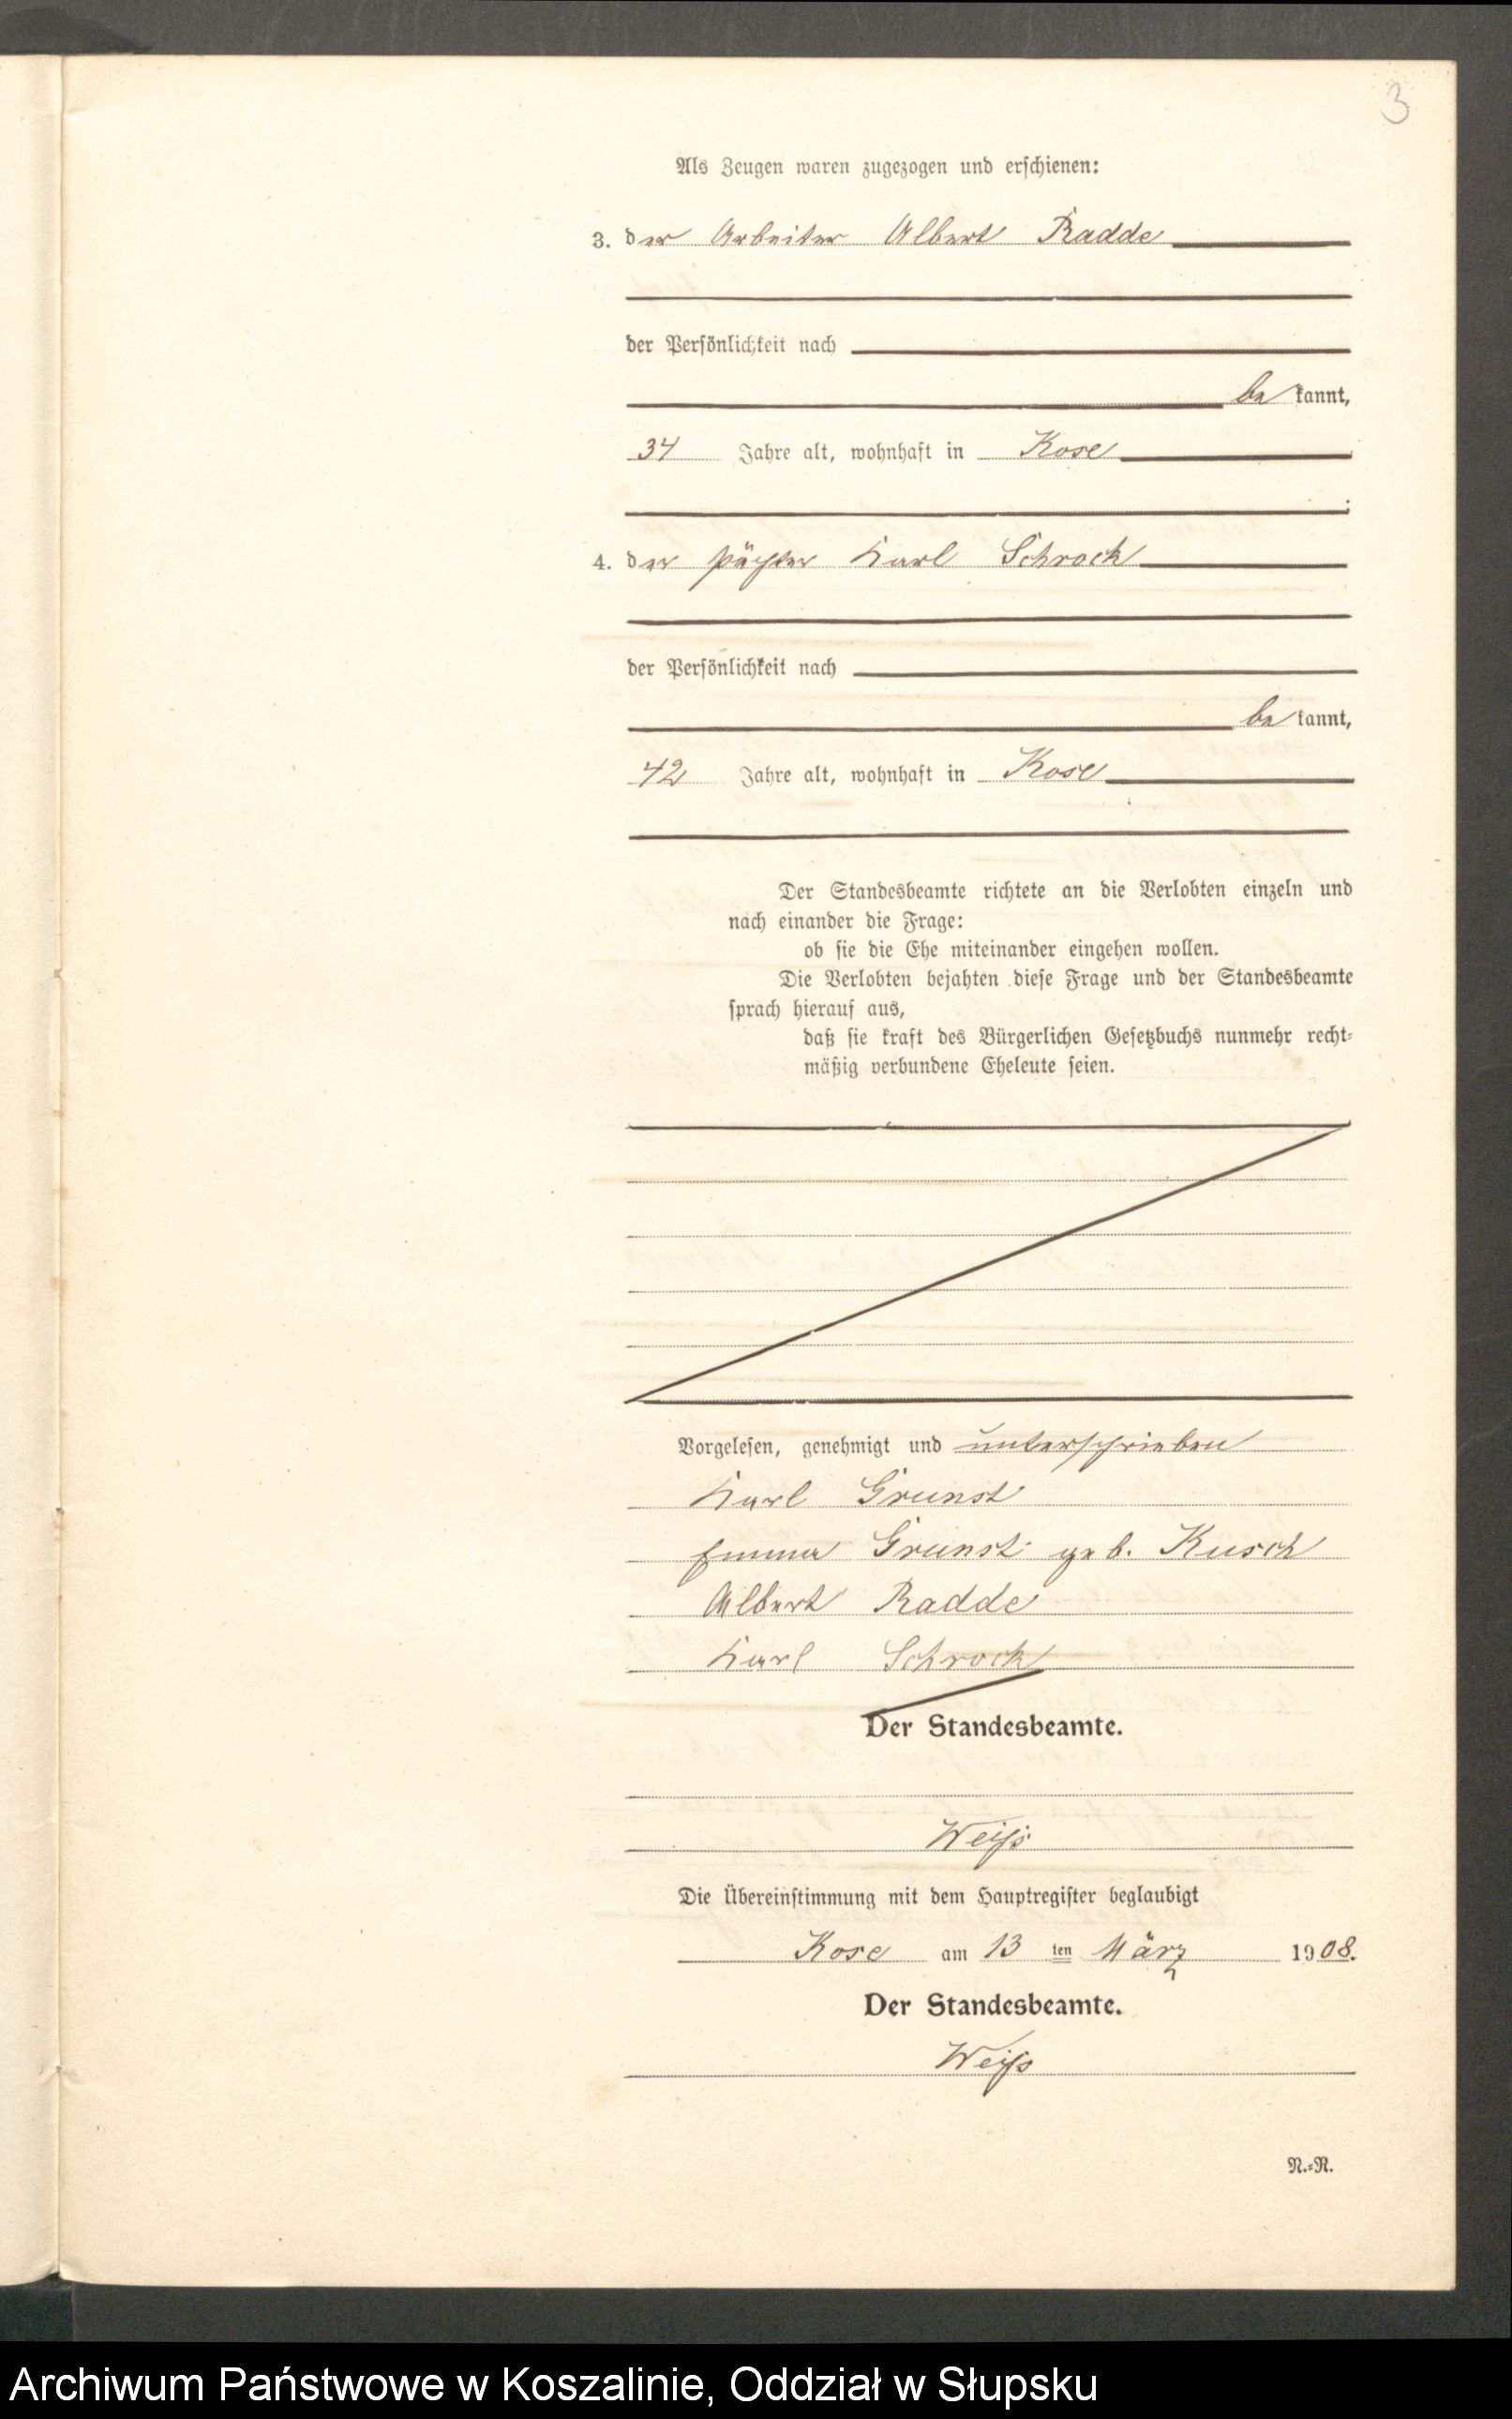 3
Als Zeugen waren zugezogen und erschienen:
3. der Arbeiter Albert Radde
der Persönlichkeit nach
be kannt,
34 Jahre alt, wohnhaft in Kose
4. der Pächter Karl Schrock
der Persönlichkeit nach
be kannt,
42 Jahre alt, wohnhaft in Kose
Der Standesbeamte richtete an die Verlobten einzeln und
nach einander die Frage:
ob sie die Ehe miteinander eingehen wollen.
Die Verlobten bejahten diese Frage und der Standesbeamte
sprach hierauf aus,
daß sie kraft des Bürgerlichen Gesetzbuchs nunmehr recht-
mäßig verbundene Eheleute seien.
Vorgelesen, genehmigt und unterschrieben
Karl Grunst
Emma Grunst geb. Kusch
Albert Radde
Karl Schrock
Der Standesbeamte.
Weiß
Die Übereinstimmung mit dem Hauptregister beglaubigt
Kose am 13 ten März 1908.
Der Standesbeamte.
Weiß
N.-R.
Archiwum Państwowe w Koszalinie, Oddział w Słupsku